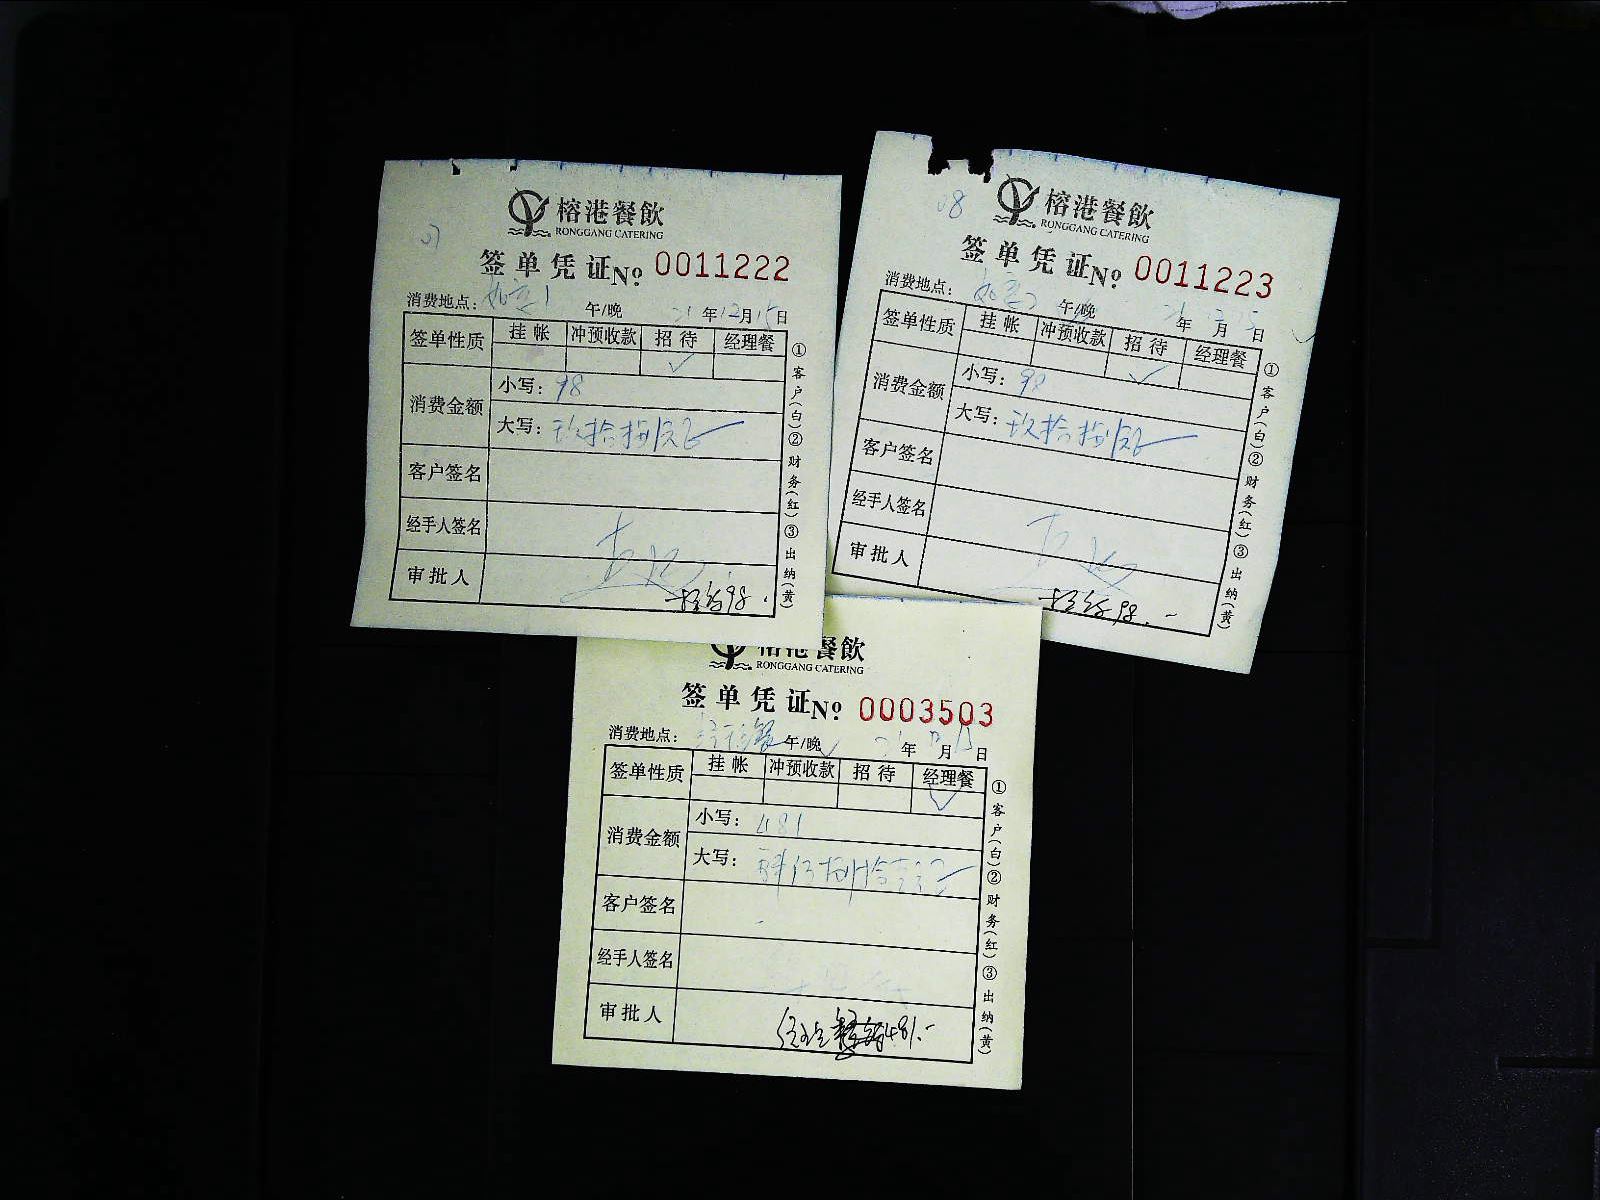 07
榕港餐飲
RONGGANG CATERING
签单凭证 No 0011222
消费地点: 如意1 午/晚 21年12月15日
签单性质 挂帐 冲预收款 招待 经理餐
✓
消费金额 小写: 98
大写: 玖拾捌元正
客户签名
经手人签名
审批人
招待98.
①客户(白)②财务(红)③出纳(黄)
08
榕港餐飲
RONGGANG CATERING
签单凭证 No 0011223
消费地点: 如意2 午/晚 21年12月15日
签单性质 挂帐 冲预收款 招待 经理餐
✓
消费金额 小写: 98
大写: 玖拾捌元正
客户签名
经手人签名
审批人
招待98.-
①客户(白)②财务(红)③出纳(黄)
榕港餐飲
RONGGANG CATERING
签单凭证 No 0003503
消费地点: 经理餐 午/晚 21年 月 日
签单性质 挂帐 冲预收款 招待 经理餐
✓
消费金额 小写: 481
大写: 肆佰捌拾壹元正
客户签名
经手人签名
审批人
481.-
①客户(白)②财务(红)③出纳(黄)